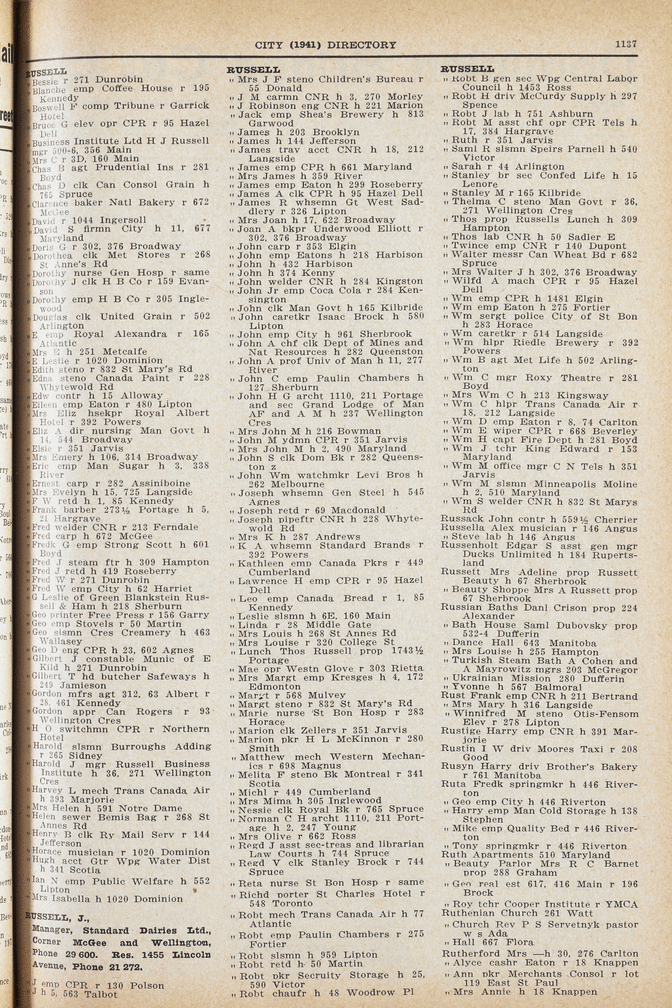 CITY (1941) DIRECTORY
1137
RUSSELL
" Bessie r 271 Dunrobin
" Blanche emp Coffee House r 195
Kennedy
" Boswell F comp Tribune r Garrick
Hotel
" Bruce G elev opr CPR r 95 Hazel
Dell
" Business Institute Ltd H J Russell
mgr 500-6, 356 Main
" Mrs C r 3D, 160 Main
" Chas B agt Prudential Ins r 281
Boyd
" Chas D clk Can Consol Grain h
765 Spruce
" Clarence baker Natl Bakery r 672
McGee
" David r 1044 Ingersoll
" David S firmn City h 11, 677
Maryland
" Doris G r 302, 376 Broadway
" Dorothea clk Met Stores r 268
St Anne's Rd
" Dorothy nurse Gen Hosp r same
" Dorothy J clk H B Co r 159 Evan-
son
" Dorothy emp H B Co r 305 Ingle-
wood
" Douglas clk United Grain r 502
Arlington
" E emp Royal Alexandra r 165
Atlantic
" Mrs E h 251 Metcalfe
" E Leslie r 1020 Dominion
" Edith steno r 832 St Mary's Rd
" Edna steno Canada Paint r 228
Whytewold Rd
" Edw contr h 15 Alloway
" Eileen emp Eaton r 480 Lipton
" Mrs Eliz hsekpr Royal Albert
Hotel r 392 Powers
" Eliz A dir nursing Man Govt h
14, 544 Broadway
" Elsie r 351 Jarvis
" Mrs Emery h 106, 314 Broadway
" Eric emp Man Sugar h 3, 338
River
" Ernest carp r 282 Assiniboine
" Mrs Evelyn h 15, 725 Langside
" F W retd h 1, 85 Kennedy
" Frank barber 273½ Portage h 5,
21 Hargrave
" Fred welder CNR r 213 Ferndale
" Fred carp h 672 McGee
" Fredk G emp Strong Scott h 601
Boyd
" Fred J steam ftr h 309 Hampton
" Fred J retd h 419 Roseberry
" Fred W r 271 Dunrobin
" Fred W emp City h 62 Harriet
" G Leslie of Green Blankstein Rus-
sell & Ham h 218 Sherburn
" Geo printer Free Press r 156 Garry
" Geo emp Shovels r 50 Martin
" Geo slsmn Cres Creamery h 463
Wallasey
" Geo D eng CPR h 23, 602 Agnes
" Gilbert J constable Munic of E
Kild h 271 Dunrobin
" Gilbert T hd butcher Safeways h
249 Jamieson
" Gordon mfrs agt 312, 63 Albert r
28, 461 Kennedy
" Gordon appr Can Rogers r 93
Wellington Cres
" H O switchmn CPR r Northern
Hotel
" Harold slsmn Burroughs Adding
r 265 Sidney
" Harold J mgr Russell Business
Institute h 36, 271 Wellington
Cres
" Harvey L mech Trans Canada Air
h 393 Marjorie
" Mrs Helen h 591 Notre Dame
" Helen sewer Bemis Bag r 268 St
Annes Rd
" Henry B clk Ry Mail Serv r 144
Jefferson
" Horace musician r 1020 Dominion
" Hugh acct Gtr Wpg Water Dist
h 341 Scotia
" Ian N emp Public Welfare h 552
Lipton
" Mrs Isabella h 1020 Dominion
RUSSELL, J.,
Manager, Standard Dairies Ltd.,
Corner McGee and Wellington,
Phone 29 600. Res. 1455 Lincoln
Avenue, Phone 21 272.
" J emp CPR r 130 Polson
" J h 5, 563 Talbot
RUSSELL
" Mrs J F steno Children's Bureau r
55 Donald
" J M carmn CNR h 3, 270 Morley
" J Robinson eng CNR h 221 Marion
" Jack emp Shea's Brewery h 813
Garwood
" James h 203 Brooklyn
" James h 144 Jefferson
" James trav acct CNR h 18, 212
Langside
" James emp CPR h 661 Maryland
" Mrs James h 359 River
" James emp Eaton h 299 Roseberry
" James A clk CPR h 95 Hazel Dell
" James R whsemn Gt West Sad-
dlery r 326 Lipton
" Mrs Joan h 17, 622 Broadway
" Joan A bkpr Underwood Elliott r
302, 376 Broadway
" John carp r 353 Elgin
" John emp Eatons h 218 Harbison
" John h 432 Harbison
" John h 374 Kenny
" John welder CNR h 284 Kingston
" John Jr emp Coca Cola r 284 Ken-
sington
" John clk Man Govt h 165 Kilbride
" John caretkr Isaac Brock h 580
Lipton
" John emp City h 961 Sherbrook
" John A chf clk Dept of Mines and
Nat Resources h 282 Queenston
" John A prof Univ of Man h 11, 277
River
" John C emp Paulin Chambers h
127 Sherburn
" John H G archt 1110, 211 Portage
and sec Grand Lodge of Man
AF and A M h 237 Wellington
Cres
" Mrs John M h 216 Bowman
" John M ydmn CPR r 351 Jarvis
" Mrs John M h 2, 490 Maryland
" John S clk Dom Bk r 282 Queens-
ton z
" John Wm watchmkr Levi Bros h
262 Melbourne
" Joseph whsemn Gen Steel h 545
Agnes
" Joseph retd r 69 Macdonald
" Joseph pipeftr CNR h 228 Whyte-
wold Rd
" Mrs K h 287 Andrews
" K A whsemn Standard Brands r
392 Powers
" Kathleen emp Canada Pkrs r 449
Cumberland
" Lawrence H emp CPR r 95 Hazel
Dell
" Leo emp Canada Bread r 1, 85
Kennedy
" Leslie slsmn h 6E, 160 Main
" Linda r 28 Middle Gate
" Mrs Louis h 268 St Annes Rd
" Mrs Louise r 320 College St
" Lunch Thos Russell prop 1743½
Portage
" Mae opr Westn Glove r 303 Rietta
" Mrs Margt emp Kresges h 4, 172
Edmonton
" Margt r 568 Mulvey
" Margt steno r 832 St Mary's Rd
" Marie nurse St Bon Hosp r 283
Horace
" Marion clk Zellers r 351 Jarvis
" Marion pkr H L McKinnon r 280
Smith
" Matthew mech Western Mechan-
ics r 698 Magnus
" Melita F steno Bk Montreal r 341
Scotia
" Michl r 449 Cumberland
" Mrs Mima h 305 Inglewood
" Nessie clk Royal Bk r 765 Spruce
" Norman C H archt 1110, 211 Port-
age h 2, 247 Young
" Mrs Olive r 662 Ross
" Regd J asst sec-treas and librarian
Law Courts h 744 Spruce
" Regd V clk Stanley Brock r 744
Spruce
" Reta nurse St Bon Hosp r same
" Richd porter St Charles Hotel r
548 Toronto
" Robt mech Trans Canada Air h 77
Atlantic
" Robt emp Paulin Chambers r 275
Fortier
" Robt slsmn h 959 Lipton
" Robt retd h 50 Martin
" Robt pkr Security Storage h 25,
590 Victor
" Robt chaufr h 48 Woodrow Pl
RUSSELL
" Robt B gen sec Wpg Central Labor
Council h 1453 Ross
" Robt H driv McCurdy Supply h 297
Spence
" Robt J lab h 751 Ashburn
" Robt M asst chf opr CPR Tels h
17, 384 Hargrave
" Ruth r 351 Jarvis
" Saml R slsmn Speirs Parnell h 540
Victor
" Sarah r 44 Arlington
" Stanley br sec Confed Life h 15
Lenore
" Stanley M r 165 Kilbride
" Thelma C steno Man Govt r 36,
271 Wellington Cres
" Thos prop Russells Lunch h 309
Hampton
" Thos lab CNR h 50 Sadler E
" Twince emp CNR r 140 Dupont
" Walter messr Can Wheat Bd r 682
Spruce
" Mrs Walter J h 302, 376 Broadway
" Wilfd A mach CPR r 95 Hazel
Dell
" Wm emp CPR h 1481 Elgin
" Wm emp Eaton h 275 Fortier
" Wm sergt police City of St Bon
h 283 Horace
" Wm caretkr r 514 Langside
" Wm hlpr Riedle Brewery r 392
Powers
" Wm B agt Met Life h 502 Arling-
ton
" Wm C mgr Roxy Theatre r 281
Boyd
" Mrs Wm C h 213 Kingsway
" Wm C hlpr Trans Canada Air r
18, 212 Langside
" Wm D emp Eaton r 8, 74 Carlton
" Wm E wiper CPR r 668 Beverley
" Wm H capt Fire Dept h 281 Boyd
" Wm J tchr King Edward r 153
Maryland
" Wm M office mgr C N Tels h 351
Jarvis
" Wm M slsmn Minneapolis Moline
h 2, 510 Maryland
" Wm S welder CNR h 832 St Marys
Rd
Russack John contr h 559½ Cherrier
Russella Alex musician r 146 Angus
" Steve lab h 146 Angus
Russenholt Edgar S asst gen mgr
Ducks Unlimited h 184 Ruperts-
land
Russett Mrs Adeline prop Russett
Beauty h 67 Sherbrook
" Beauty Shoppe Mrs A Russett prop
67 Sherbrook
Russian Baths Danl Crison prop 224
Alexander
" Bath House Saml Dubovsky prop
532-4 Dufferin
" Dance Hall 643 Manitoba
" Mrs Louise h 255 Hampton
" Turkish Steam Bath A Cohen and
A Mayrowitz mgrs 203 McGregor
" Ukrainian Mission 280 Dufferin
" Yvonne h 567 Balmoral
Rust Frank emp CNR h 211 Bertrand
" Mrs Mary h 316 Langside
" Winnifred M steno Otis-Fensom
Elev r 278 Lipton
Rustige Harry emp CNR h 391 Mar-
jorie
Rustin I W driv Moores Taxi r 208
Good
Rusyn Harry driv Brother's Bakery
r 761 Manitoba
Ruta Fredk springmkr h 446 River-
ton
" Geo emp City h 446 Riverton
" Harry emp Man Cold Storage h 138
Stephen
" Mike emp Quality Bed r 446 River-
ton
" Tony springmkr r 446 Riverton
Ruth Apartments 510 Maryland
" Beauty Parlor Mrs R C Barnet
prop 288 Graham
" Geo real est 617, 416 Main r 196
Brock
" Roy tchr Cooper Institute r YMCA
Ruthenian Church 261 Watt
" Church Rev P S Servetnyk pastor
w s Ada
" Hall 667 Flora
Rutherford Mrs —h 30, 276 Carlton
" Alyce cashr Eaton r 18 Knappen
" Ann pkr Merchants Consol r lot
119 East St Paul
" Mrs Annie h 18 Knappen